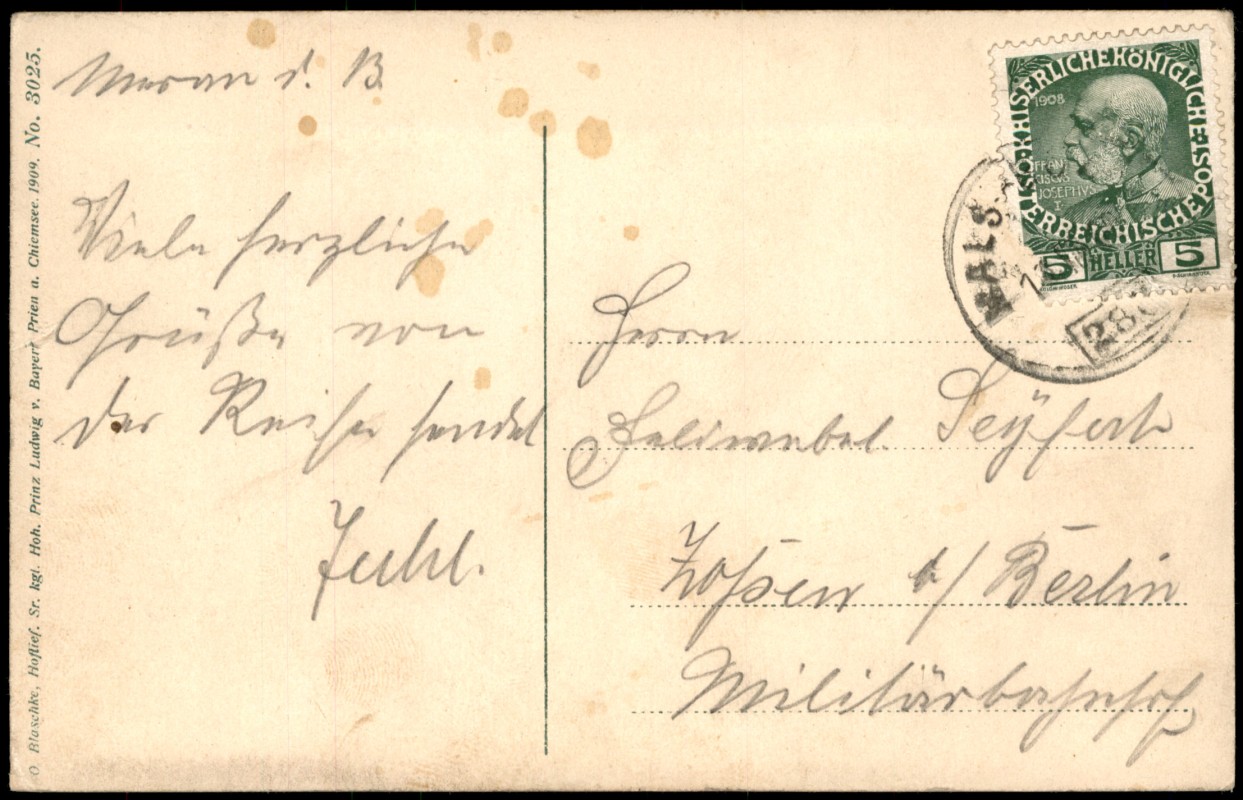 O Blaschke, Hoflief. Sr. kgl. Hoh. Prinz Ludwig v. Bayern Prien a. Chiemsee. 1909. No. 3025.
Meran d. B.
Viele herzliche
Grüße von
der Reise sendet
Juhl.
KAISERLICHE KÖNIGLICHE ÖSTERREICHISCHE POST
1908
FRAN
CISCVS
JOSEPHVS
I
5 HELLER 5
MALS
28
Herrn
Feldwebel Seyferth
Zossen b/ Berlin
Militärbahnhof